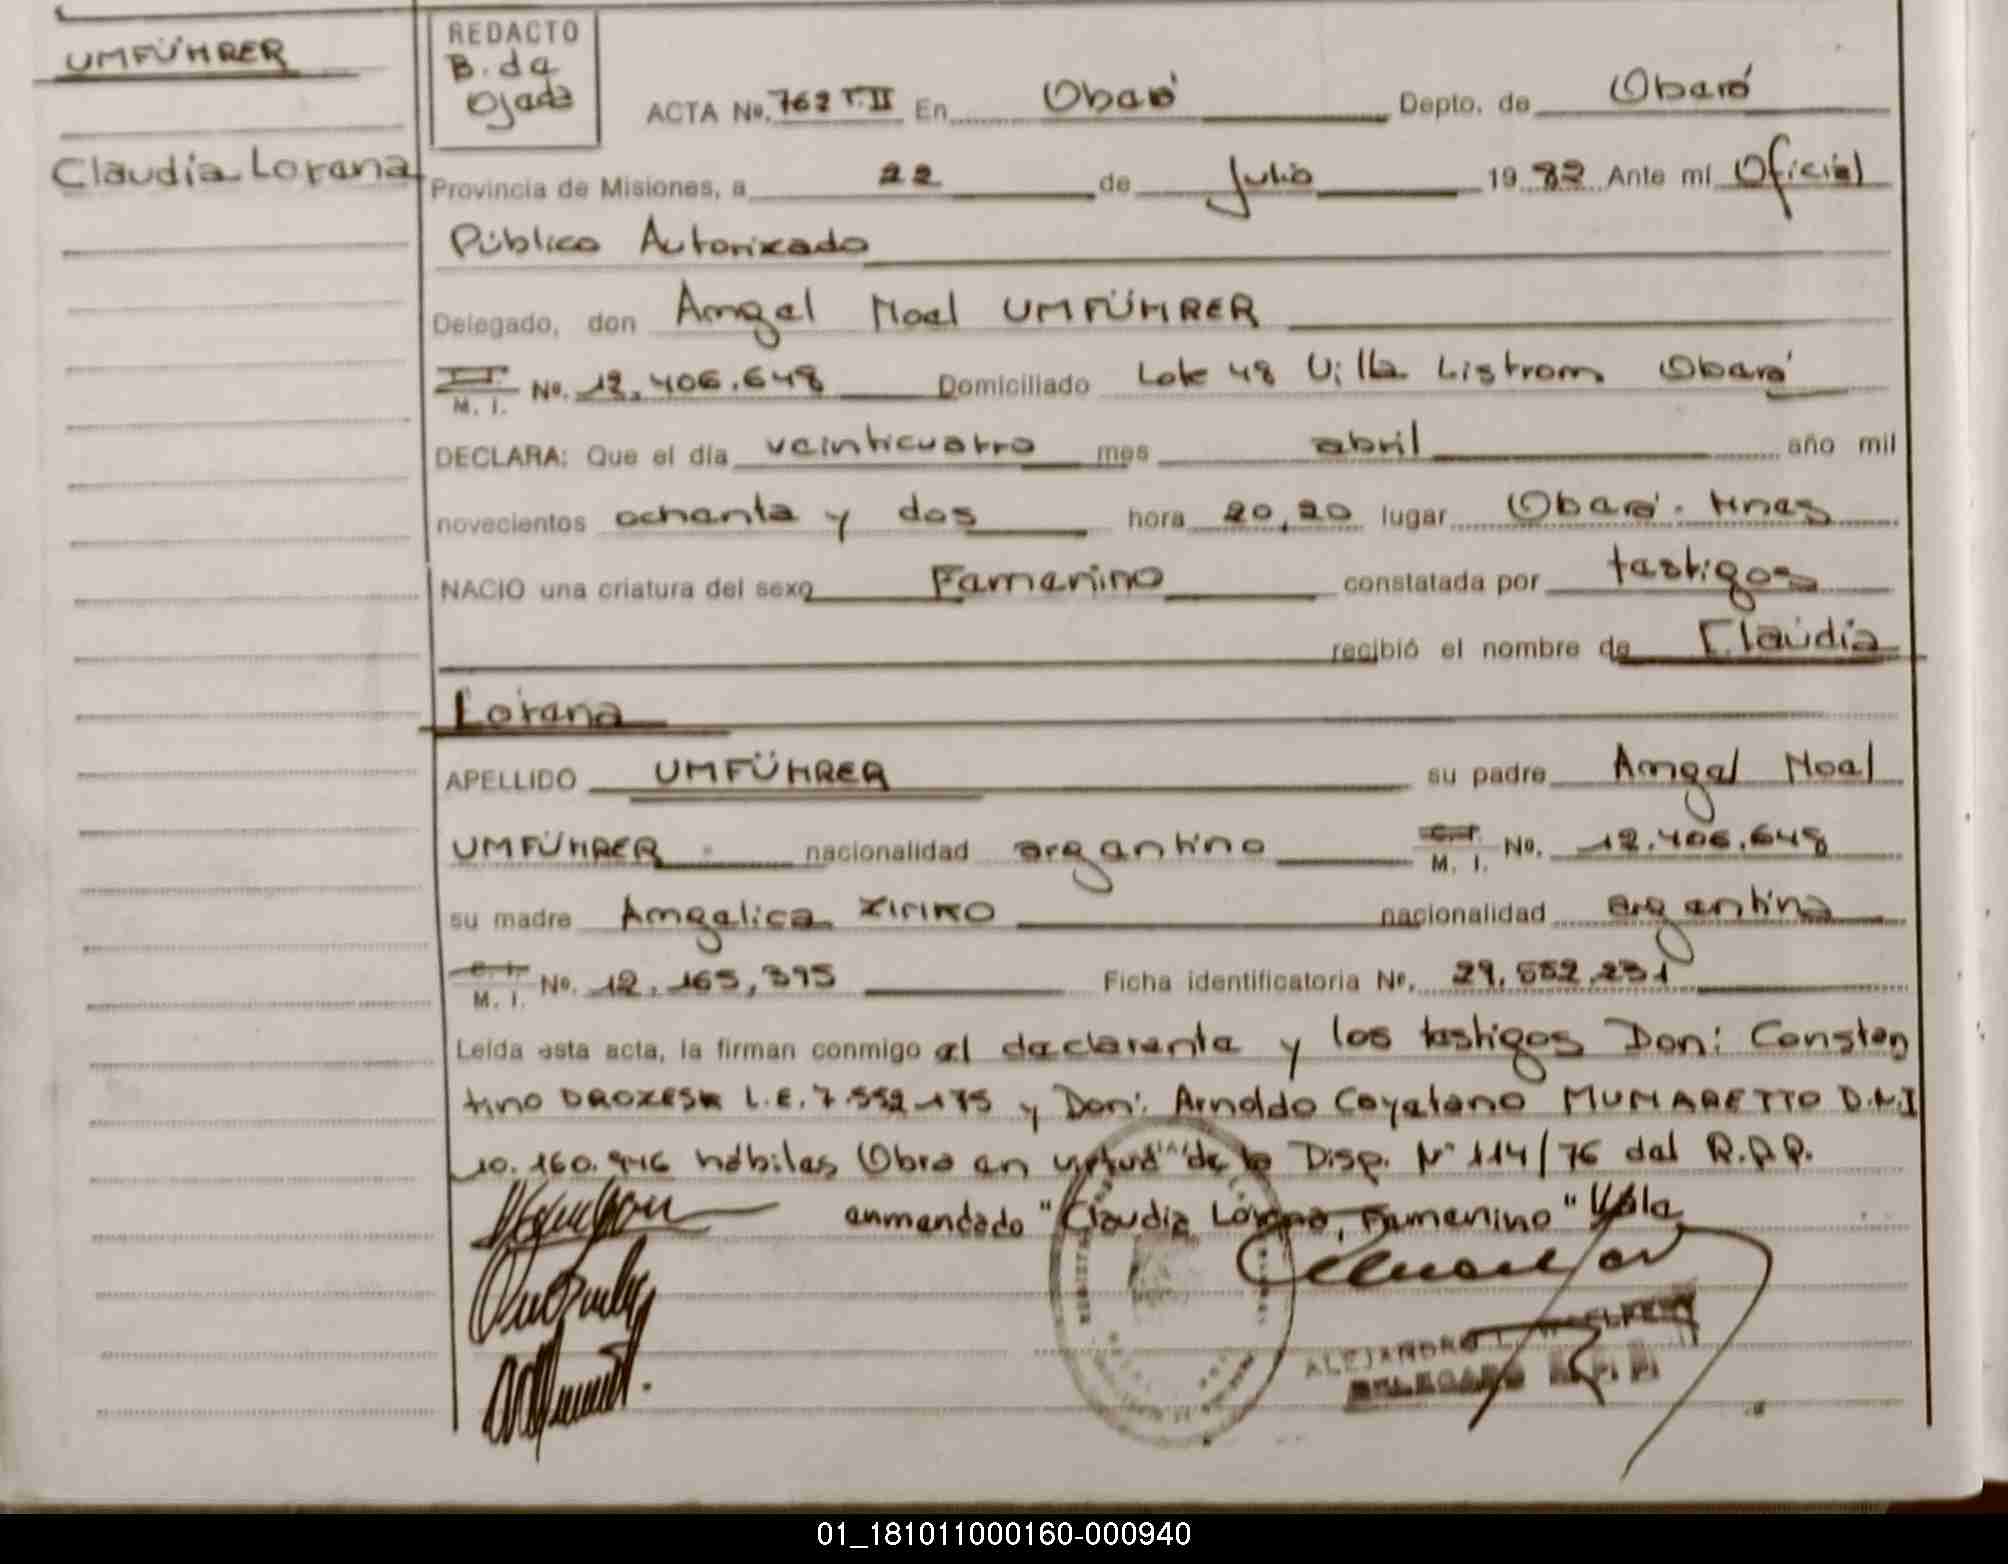 UMFÜHRER
Claudia Lorena
REDACTO
B. de
Ojeda
ACTA No. 762 T.II En Oberá Depto. de Oberá
Provincia de Misiones, a 22 de Julio 19 82 Ante mí Oficial
Público Autorizado
Delegado, don Angel Noel UMFÜHRER
M. I. No. 12.406.648 Domiciliado Lote 48 Villa Listrom Oberá
DECLARA: Que el día veinticuatro mes abril año mil
novecientos ochenta y dos hora 20,20 lugar Oberá. Mnes
NACIO una criatura del sexo Femenino constatada por testigos
recibió el nombre de Claudia
Lorena
APELLIDO UMFÜHRER su padre Angel Noel
UMFÜHRER nacionalidad argentino C. I. M. I. No. 12.406.648
su madre Angelica nacionalidad argentina
C. I. M. I. No. 12.165,395 Ficha identificatoria No. 29.552.231
Leída esta acta, la firman conmigo el declarante y los testigos Don: Constan
tino L.E. 7.552.175 y Don: Arnoldo Cayetano MUMARETTO D.N.I
10.160.946 hábiles Obro en virtud de la Disp. Nº 114/76 del R.P.P.
enmendado "Claudia Lorena, Femenino" Vale
ALEJANDRO L.
DELEGADO R. P. P.
01_181011000160-000940